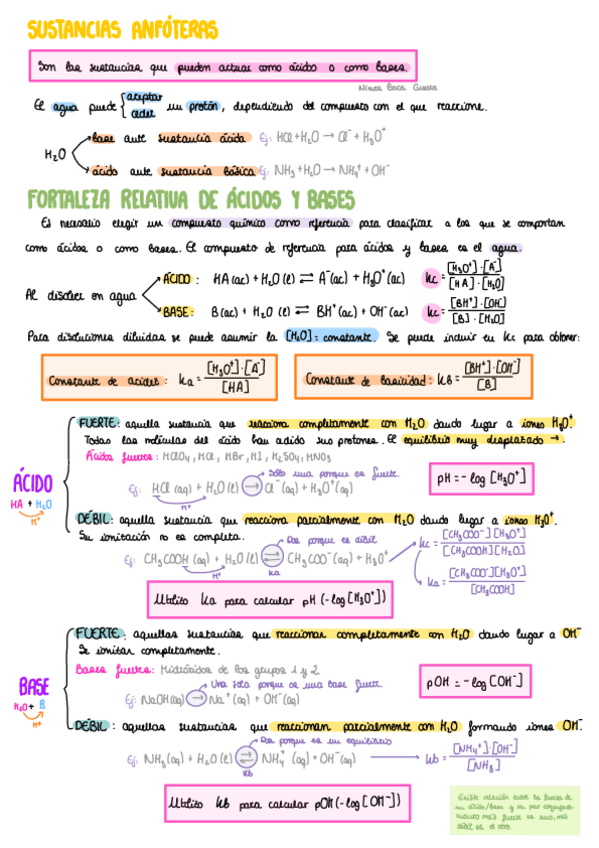 SUSTANCIAS ANFÓTERAS
Son las sustancias que pueden actuar como ácidos o como bases.
El agua puede { aceptar ceder un protón, dependiendo del compuesto con el que reaccione.
H₂O
base ante sustancia ácida Ej: HCl + H₂O → Cl⁻ + H₃O⁺
ácido ante sustancia básica Ej: NH₃ + H₂O → NH₄⁺ + OH⁻
FORTALEZA RELATIVA DE ÁCIDOS Y BASES
Es necesario elegir un compuesto químico como referencia para clasificar a los que se comportan
como ácidos o como bases. El compuesto de referencia para ácidos y bases es el agua.
Al disolver en agua
ÁCIDO: HA (ac) + H₂O (l) ⇌ A⁻(ac) + H₃O⁺ (ac) Kc = [H₃O⁺]·[A⁻] / [HA]·[H₂O]
BASE: B(ac) + H₂O (l) ⇌ BH⁺(ac) + OH⁻(ac) Kc = [BH⁺]·[OH⁻] / [B]·[H₂O]
Para disoluciones diluidas se puede asumir la [H₂O] = constante. Se puede incluir en Kc para obtener:
Constante de acidez: Ka = [H₃O⁺]·[A⁻] / [HA]
Constante de basicidad: Kb = [BH⁺]·[OH⁻] / [B]
ÁCIDO
HA + H₂O
H⁺
FUERTE: aquella sustancia que reacciona completamente con H₂O dando lugar a iones H₃O⁺.
Todas las moléculas del ácido han cedido sus protones. El equilibrio muy desplazado →.
Ácidos fuertes: HClO₄, HCl, HBr, HI, H₂SO₄, HNO₃
Sólo una porque es fuerte.
Ej: HCl (aq) + H₂O (l) → Cl⁻(aq) + H₃O⁺(aq)
H⁺
pH = - log [H₃O⁺]
DÉBIL: aquella sustancia que reacciona parcialmente con H₂O dando lugar a iones H₃O⁺.
Su ionización no es completa.
Dos porque es débil
Ej: CH₃COOH (aq) + H₂O (l) ⇌ CH₃COO⁻(aq) + H₃O⁺
H⁺
Ka
Kc = [CH₃COO⁻][H₃O⁺] / [CH₃COOH][H₂O]
Ka = [CH₃COO⁻][H₃O⁺] / [CH₃COOH]
Utilizo Ka para calcular pH (-log[H₃O⁺])
BASE
H₂O + B
H⁺
FUERTE: aquellas sustancias que reaccionan completamente con H₂O dando lugar a OH⁻
Se ionizan completamente.
Bases fuertes: Hidróxidos de los grupos 1 y 2
Una sola porque es una base fuerte.
Ej: NaOH(aq) → Na⁺(aq) + OH⁻(aq)
pOH = - log [OH⁻]
DÉBIL: aquellas sustancias que reaccionan parcialmente con H₂O formando iones OH⁻.
Dos porque es un equilibrio
Ej: NH₃(aq) + H₂O (l) ⇌ NH₄⁺ (aq) + OH⁻(aq)
Kb
Kb = [NH₄⁺]·[OH⁻] / [NH₃]
Utilizo Kb para calcular pOH (-log [OH⁻])
Existe relación entre la fuerza de
un ácido/base y su par conjugado:
cuanto más fuerte es uno, más
débil es el otro.